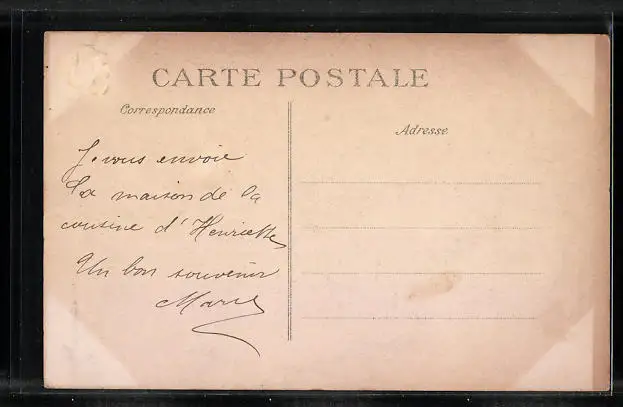 CARTE POSTALE
Correspondance
Je vous envoie
la maison de la
cousine d'Henriette
Un bon souvenir
Marie
Adresse